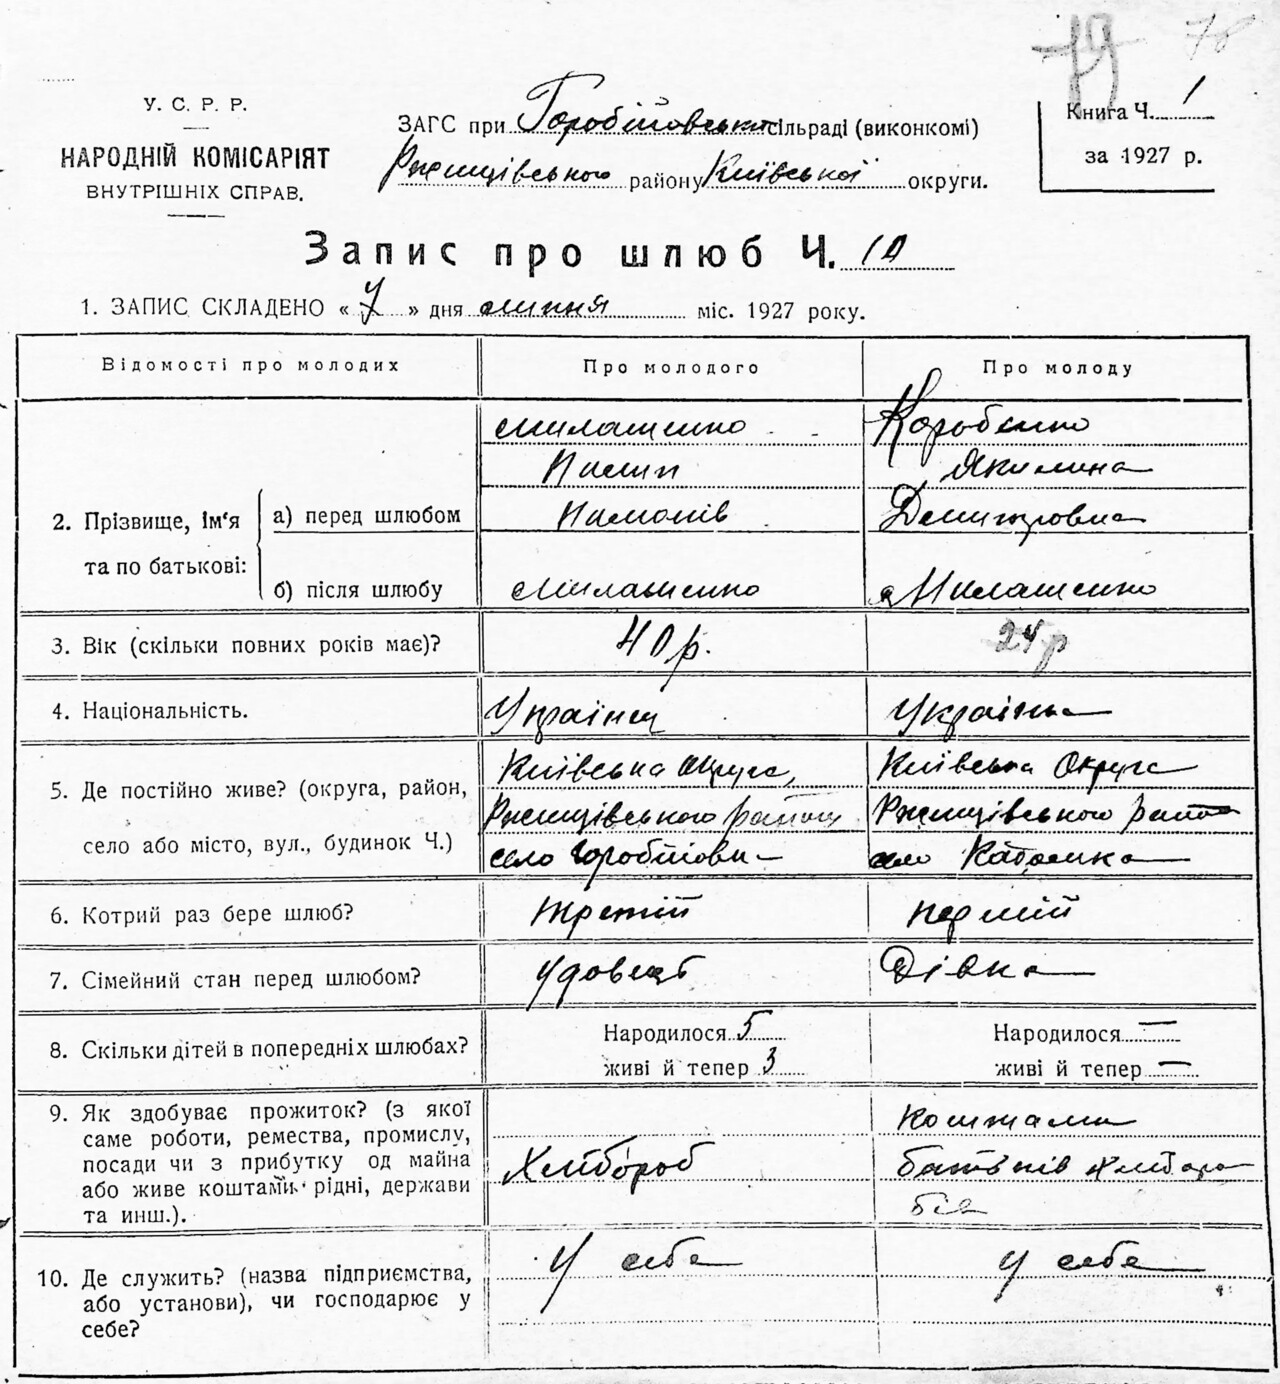 79 78
У. С. Р. Р.
НАРОДНІЙ КОМІСАРІЯТ
ВНУТРІШНІХ СПРАВ.
ЗАГС при Горобіївській сільраді (виконкомі)
Ржищівського району Київської округи.
Книга Ч. 1
за 1927 р.
Запис про шлюб Ч. 10
1. ЗАПИС СКЛАДЕНО « 7 » дня липня міс. 1927 року.
Відомості про молодих Про молодого Про молоду
2. Прізвище, ім'я та по батькові:
а) перед шлюбом
Милашенко Коробенко
Пилип Якилина
Демитровна
б) після шлюбу Милашенко Милашенко
3. Вік (скільки повних років має)? 40 р. 24 р
4. Національність. Українец Українка
5. Де постійно живе? (округа, район,
село або місто, вул., будинок Ч.)
Київська округа, Київська Округа
Ржищівського району Ржищівського району
село Горобіївка село Кадомка
6. Котрий раз бере шлюб? третій перший
7. Сімейний стан перед шлюбом? удовець Дівка
8. Скільки дітей в попередніх шлюбах?
Народилося 5 Народилося —
живі й тепер 3 живі й тепер —
9. Як здобуває прожиток? (з якої
саме роботи, ремества, промислу,
посади чи з прибутку од майна
або живе коштами рідні, держави
та инш.).
Хлібороб
коштами
батьків хлібаро
бів
10. Де служить? (назва підприємства,
або установи), чи господарює у
себе?
У себе у себе